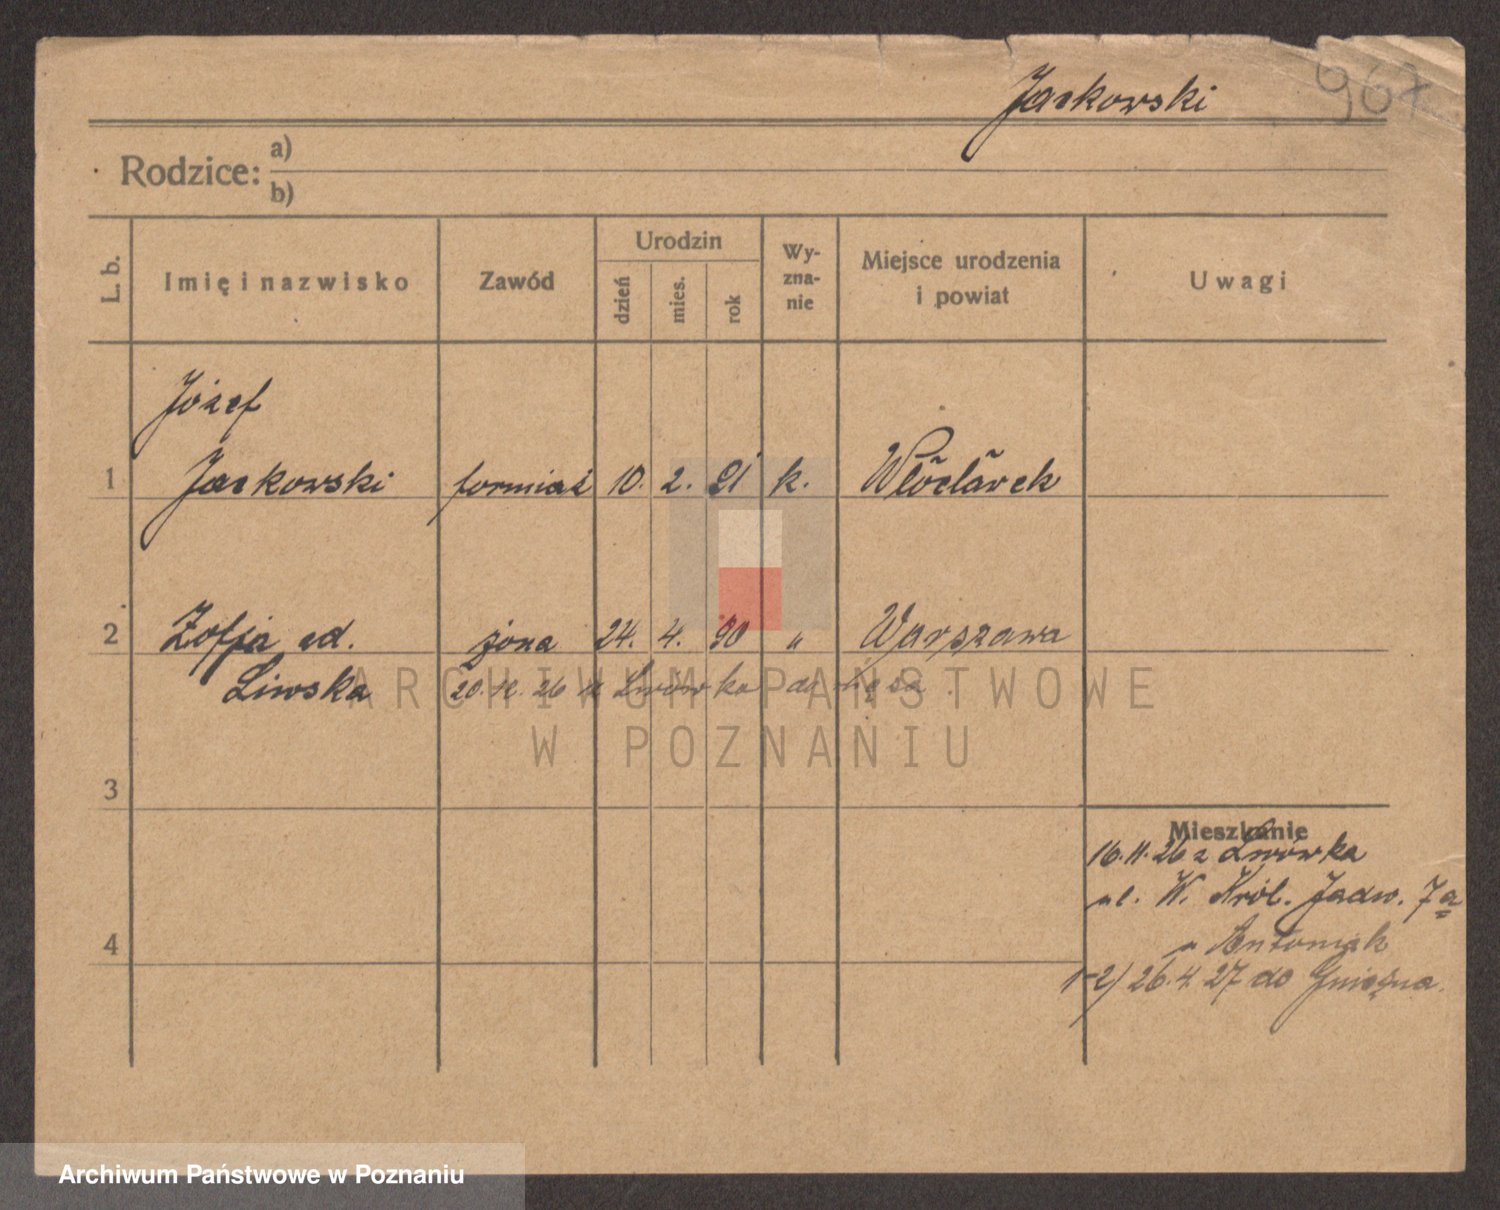 Jackowski
967
Rodzice: a)
b)
L. b.
Imię i nazwisko
Zawód
Urodzin
dzień
mies.
rok
Wy-
zna-
nie
Miejsce urodzenia
i powiat
Uwagi
Józef
1 Jackowski forniaż 10. 2. 91 k. Włocławek
2 Zofja ż. żona 24. 4. 90 " Warszawa
Liwska 20.12.26 z Lwówka do męża
3
4
Mieszkanie
16.11.26 z Lwówka
ul. W. Król. Jadw. 7a
u Antoniak
1-2) 26.4.27 do Gniezna.
ARCHIWUM PAŃSTWOWE
W POZNANIU
Archiwum Państwowe w Poznaniu